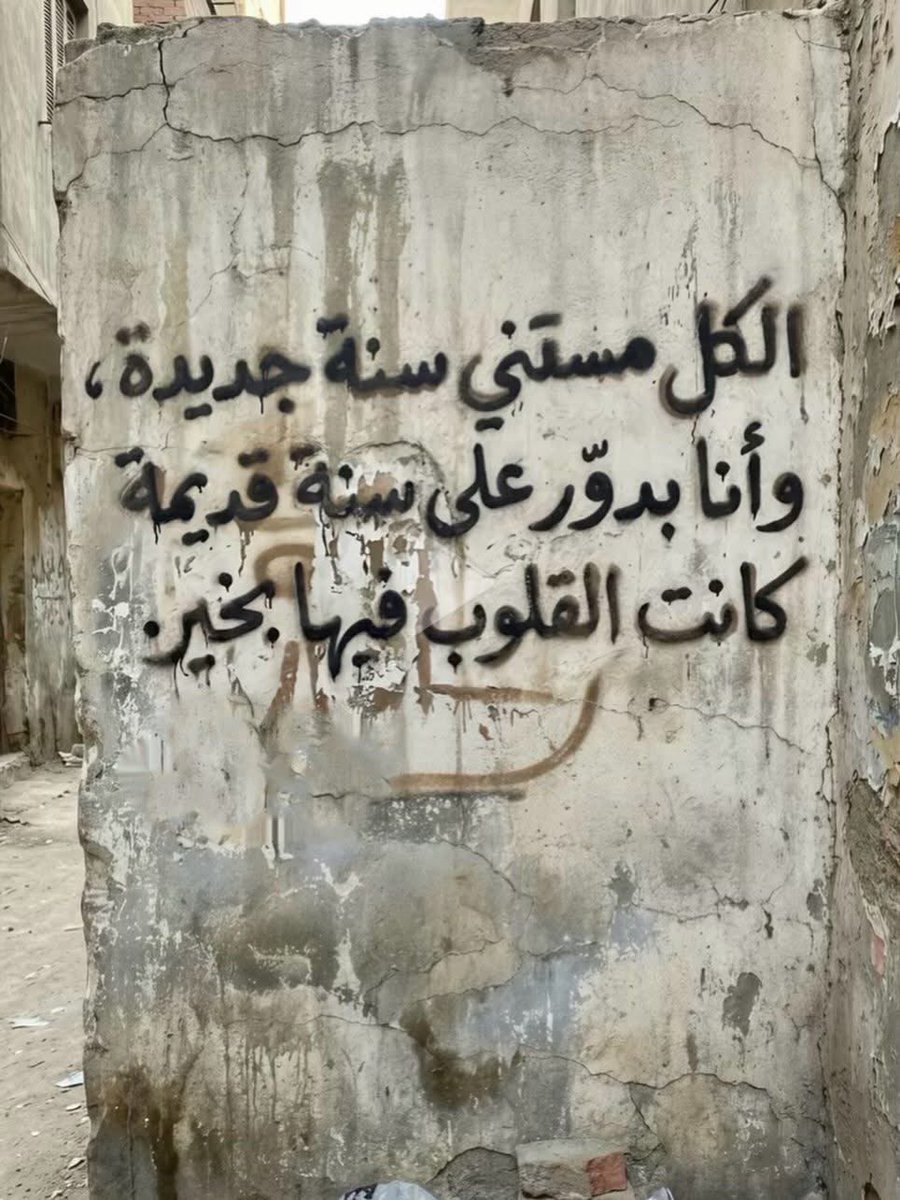 الكل مستني سنة جديدة،
وأنا بدوّر على سنة قديمة
كانت القلوب فيها بخير.